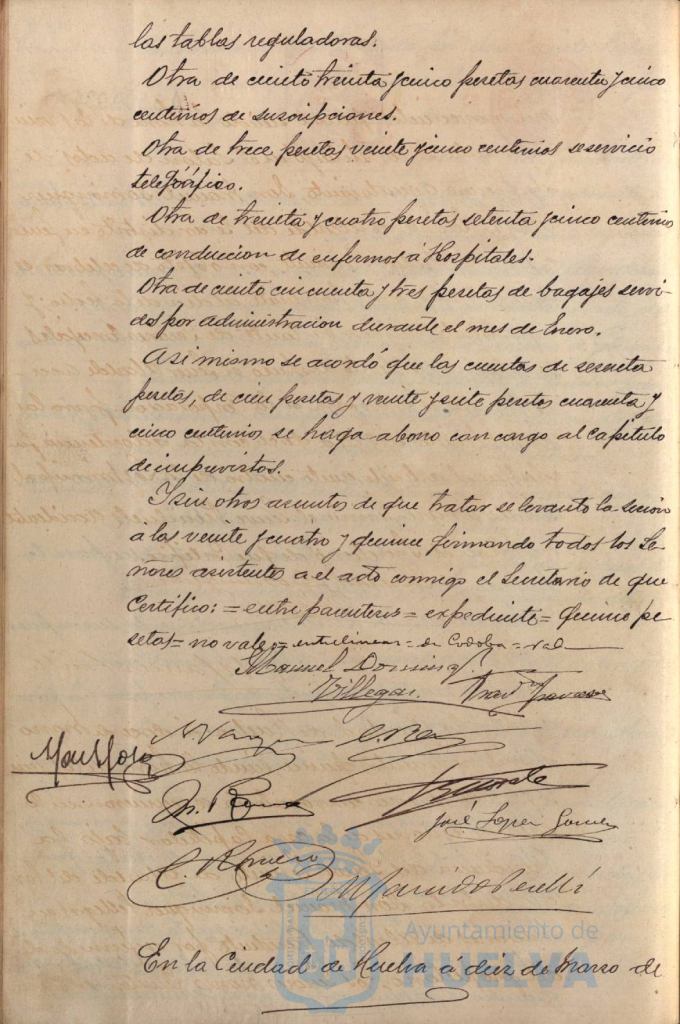 las tablas reguladoras.
Otra de ciento treinta y cinco pesetas cuarenta y cinco
centimos de suscripciones.
Otra de trece pesetas veinte y cinco centimos se servicio
telefónico.
Otra de treinta y cuatro pesetas setenta y cinco centimos
de conduccion de enfermos á Hospitales.
Otra de ciento cincuenta y tres pesetas de bagajes servi-
dos por administracion durante el mes de Enero.
Asi mismo se acordó que las cuentas de sesenta
pesetas, de cien pesetas y veinte y siete pesetas cuarenta y
cinco centimos se haga abono con cargo al Capitulo
de imprevistos.
Y sin otros asuntos de que tratar se levanto la sesion
á las veinte y cuatro y quince firmando todos los Se-
ñores asistentes a el acto conmigo el Secretario de que
Certifico: = entre parentesis = expediente = quince pe
setas = no vale = entrelineas = de Cordoba = vale
Manuel Doming
Villegas
N. Vazquez
José Lopez Gomez
C. Romero
En la Ciudad de Huelva á diez de Marzo de
Ayuntamiento de
HUELVA